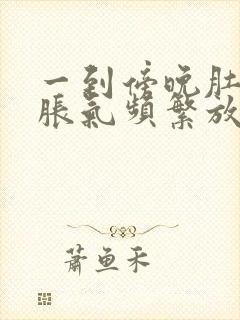 一到傍晚肚
脹氣頻繁放
蕭魚禾